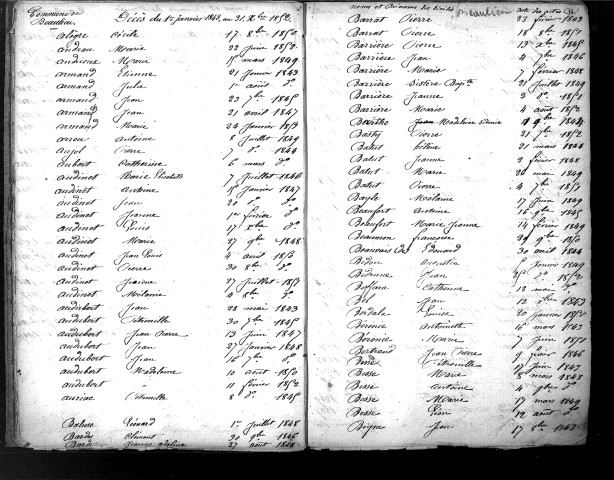 Commune de Beaulieu
Décès du 1er janvier 1843, au 31 Xbre 1852
alègre Cécile 17 8bre 1850
andrau Marie 22 juin 1852
andrieux Marie 15 mars 1849
armand Etienne 21 janvier 1843
armand Julie 1er aout do
armand Jean 23 7bre 1845
armand Jean 21 avril 1847
armand Marie 24 janvier 1853
arrou antoine 6 juillet 1849
aujol Pierre 7 do 1844
aubert Catherine 6 mars do
audinet Marie Elisabeth 7 juillet 1846
audinet antoine 15 janvier 1847
audinet Jean 20 do do
audinet Jeanne 1er février do
audinet Louis 17 Xbre do
audinet Marie 27 9bre 1848
audinet Jean Louis 4 avril 1850
audinet Pierre 30 8bre do
audinet Jeanne 27 juillet 1851
audinet Mélanie 4 8bre do
audubert Jean 28 mai 1843
audubert Pétronille 30 7bre 1845
audubert Jean Pierre 13 juin 1847
audubert Jean 27 janvier 1848
audubert Jean 16 7bre do
audubert Madeleine 10 aout 1850
audubert " 11 février 1852
auriac Pétronille 8 do 1845
Baluse Léonard 1er juillet 1848
Bardy Clément 20 9bre 1846
Bardy Jeanne adeline 27 aout 1848
noms et prénoms des décédés Beaulieu date des actes
Barrat Pierre 23 février 1843
Barrat Pierre 18 8bre 1850
Barrière Pierre 13 Xbre 1845
Barrière Jean 4 7bre 1846
Barrière Marie 7 février 1848
Barrière Sixtère Bapte 21 juillet 1849
Barrière Jeanne 1er do 1851
Barrière Marie 4 aout 1852
Barthe Jean Madeleine 11 9bre 1844
Basty Pierre 21 7bre 1852
Batut hélène 21 mars 1844
Batut Jeanne 2 février 1848
Batut Marie 20 mai 1849
Batut Pierre 4 7bre 1851
Bayle Mélanie 17 juin 1849
Beaufort antoine 16 Xbre 1845
Beaufort Marie Jeanne 14 février 1849
Beaumon françoise 20 9bre 1850
Beauvais de Edouard 30 avril 1844
Bedou augustin 5 janvier 1849
Bedrune Jean 25 do 1852
Beffara Catherine 12 mai do
Bel Jean 12 Xbre 1843
Berdala Louise 20 janvier 1850
Béronie antoinette 16 mars 1843
Béronie Marie 7 juin 1851
Bertrand Jean Pierre 9 février 1846
Besse Pétronille 17 juin 1843
Besse Marie 8 mars 1843
Besse antoine 4 9bre do
Besse Marie 17 mars 1849
Besse Léon 12 aout do
Beyne Jean 17 8bre 1847